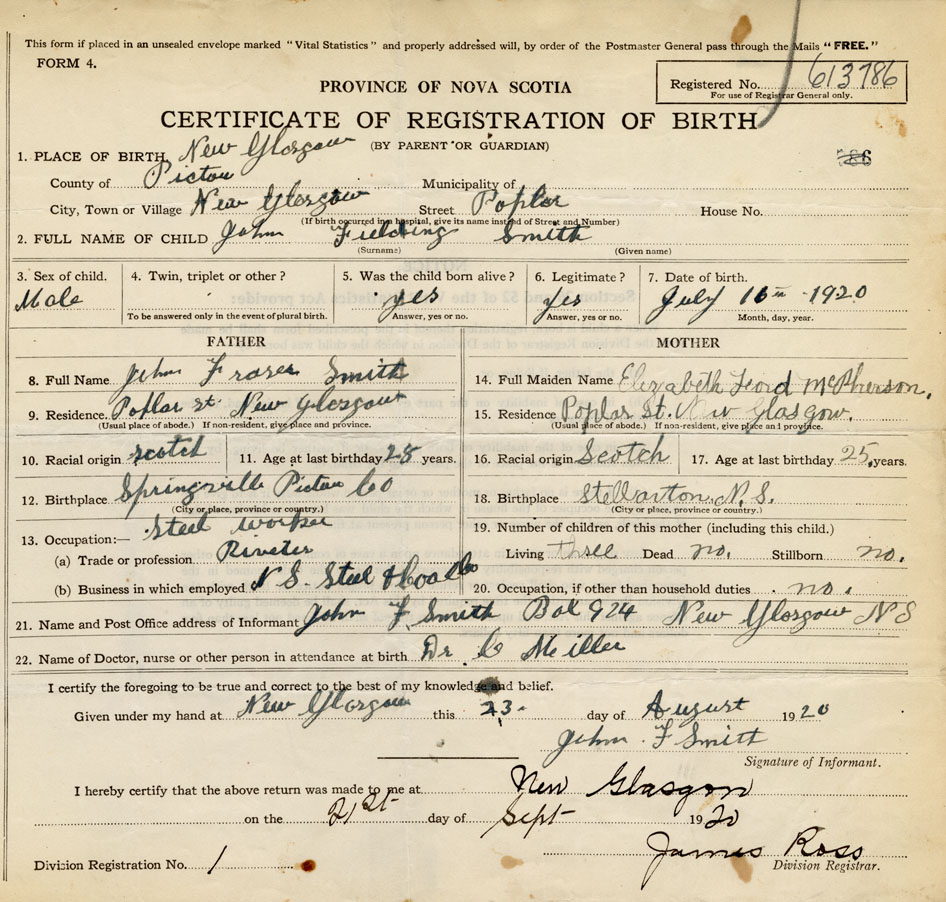 This form if placed in an unsealed envelope marked "Vital Statistics" and properly addressed will, by order of the Postmaster General pass through the Mails "FREE."
FORM 4.
Registered No. 613786
For use of Registrar General only.
PROVINCE OF NOVA SCOTIA
CERTIFICATE OF REGISTRATION OF BIRTH
(BY PARENT OR GUARDIAN)
1. PLACE OF BIRTH, New Glasgow
County of Pictou Municipality of
City, Town or Village New Glasgow Street Poplar House No.
(If birth occurred in a hospital, give its name instead of Street and Number)
2. FULL NAME OF CHILD John Fielding Smith
(Surname) (Given name)
3. Sex of child. 4. Twin, triplet or other? 5. Was the child born alive? 6. Legitimate? 7. Date of birth.
Male yes Yes July 16th 1920
To be answered only in the event of plural birth. Answer, yes or no. Answer, yes or no. Month, day, year.
FATHER MOTHER
8. Full Name John Fraser Smith 14. Full Maiden Name Elizabeth McPherson.
9. Residence. Poplar St. New Glasgow 15. Residence Poplar St. New Glasgow.
(Usual place of abode.) If non-resident, give place and province. (Usual place of abode.) If non-resident, give place and province.
10. Racial origin Scotch 11. Age at last birthday 28 years. 16. Racial origin Scotch 17. Age at last birthday 25, years.
12. Birthplace Springville Pictou Co 18. Birthplace Stellarton, N.S.
(City or place, province or country.) (City or place, province or country.)
13. Occupation:— Steel worker 19. Number of children of this mother (including this child.)
(a) Trade or profession Riveter Living three Dead no. Stillborn no.
(b) Business in which employed N S. Steel & Coal Co 20. Occupation, if other than household duties no.
21. Name and Post Office address of Informant John F. Smith Box 924 New Glasgow N S
22. Name of Doctor, nurse or other person in attendance at birth Dr C Miller
I certify the foregoing to be true and correct to the best of my knowledge and belief.
Given under my hand at New Glasgow this 23. day of August 1920
John F Smith
Signature of Informant.
I hereby certify that the above return was made to me at New Glasgow
on the 21st day of Sept 1920
James Ross
Division Registration No. 1 Division Registrar.